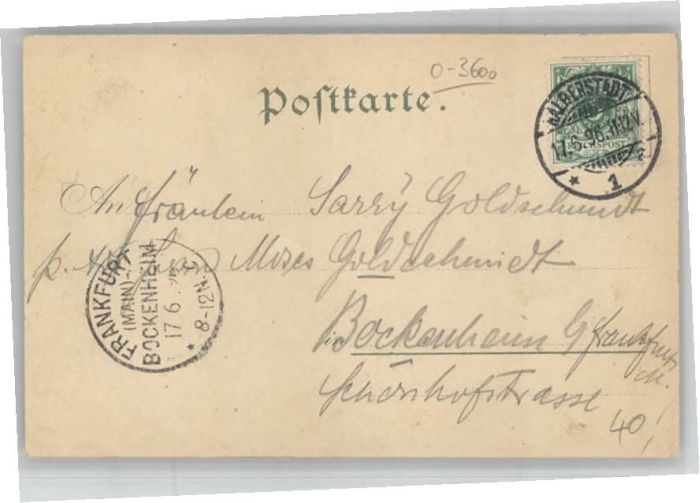 0-3600
Postkarte.
HALBERSTADT
17.6.96.11-12V.
REICHSPOST
* 1 *
An Fräulein Sarry Goldschmidt
p. Adr. Herrn Moses Goldschmidt
FRANKFURT
(MAIN)-
BOCKENHEIM
17 6
* 8-12N.
Bockenheim
Frankfurt
M.
Schönhofstrasse
40